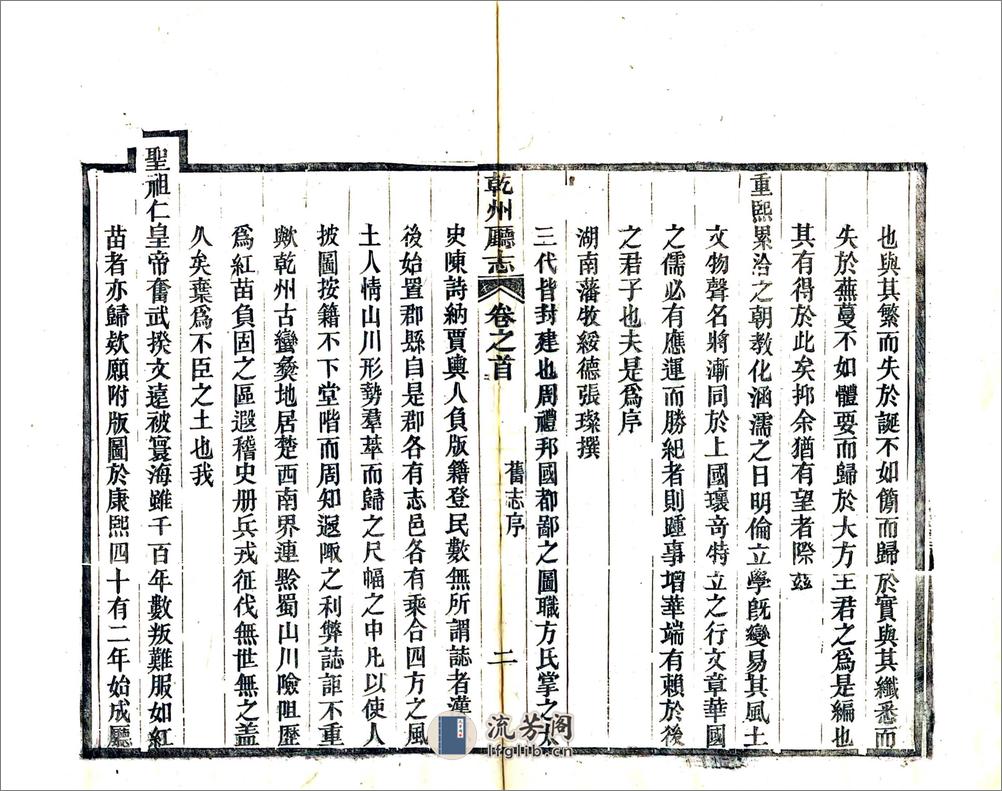 也與其繁而失於誕不如簡而歸於實與其纖悉而
失於蕪蔓不如體要而歸於大方王君之爲是編也
其有得於此矣抑余猶有望者際兹
重熙累洽之朝教化涵濡之日明倫立學旣變易其風土
文物聲名將漸同於上國瓌奇特立之行文章華國
之儒必有應運而勝紀者則踵事增華端有賴於後
之君子也夫是爲序
湖南藩牧綏德張璨撰
三代皆封建也周禮邦國都鄙之圖職方氏掌之太
乾州廳志
卷之首
舊志序
二
史陳詩納賈輿人負版籍登民數無所謂誌者漢
後始置郡縣自是郡各有志邑各有乘合四方之風
土人情山川形勢羣萃而歸之尺幅之中凡以使人
披圖按籍不下堂階而周知遐陬之利弊誌詎不重
歟乾州古蠻彝地居楚西南界連黔蜀山川險阻歷
爲紅苗負固之區遐稽史册兵戎征伐無世無之蓋
久矣棄爲不臣之土也我
聖祖仁皇帝奮武揆文遠被寰海雖千百年數叛難服如紅
苗者亦歸欵願附版圖於康熙四十有二年始成廳
流芳阁
lfglib.cn